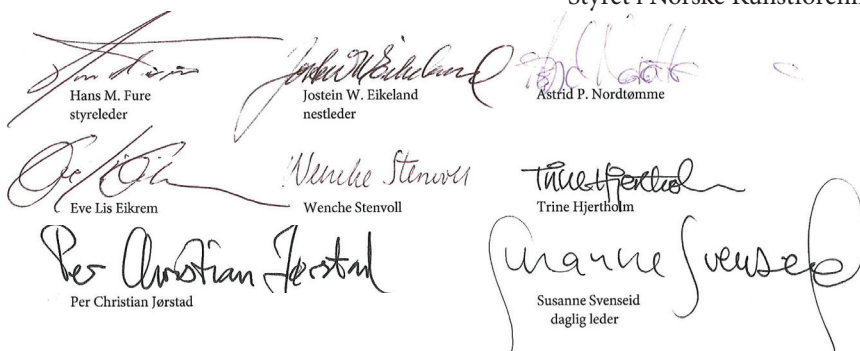 Styret i Norske Kunstforeni
Hans M. Fure
styreleder
Jostein W. Eikeland
Jostein W. Eikeland
nestleder
Astrid P. Nordtømme
Eve Lis Eikrem
Wenche Stenvoll
Wenche Stenvoll
Trine Hjertholm
Trine Hjertholm
Per Christian Jørstad
Per Christian Jørstad
Susanne Svenseid
Susanne Svenseid
daglig leder